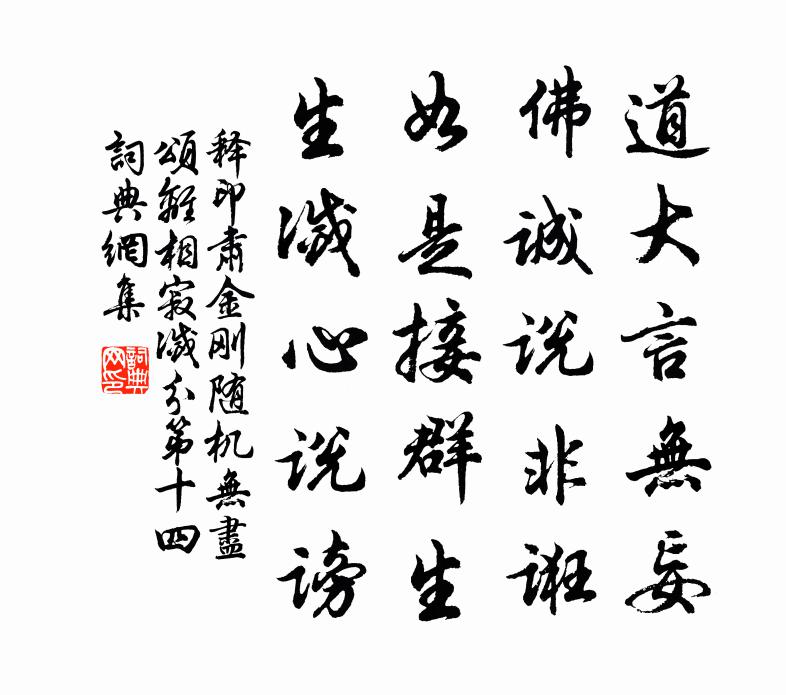 道大言無妄
佛誠说非誑
如是接群生
生滅心说謗
释印肅金刚随机無盡
頌離相寂滅分第十四
詞典網集
詞典
网印